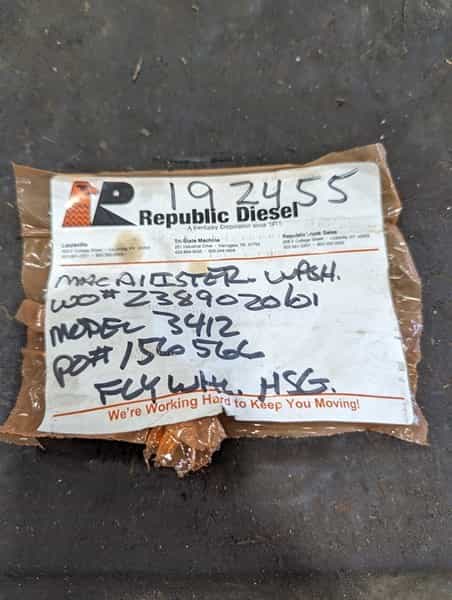 192455
R
Republic Diesel
A Kentucky Corporation since 1911
Louisville
Tri-State Machine
Republic Truck Sales
MACALLISTER WASH.
WO# Z389020601
MODEL 3412
PO# 156566
FLYWHL. HSG.
We're Working Hard to Keep You Moving!